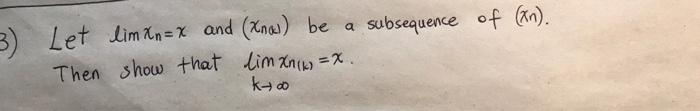 3) Let lim xn = x and (xn(k)) be a subsequence of (xn).
Then show that lim xn(k) = x.
k→∞